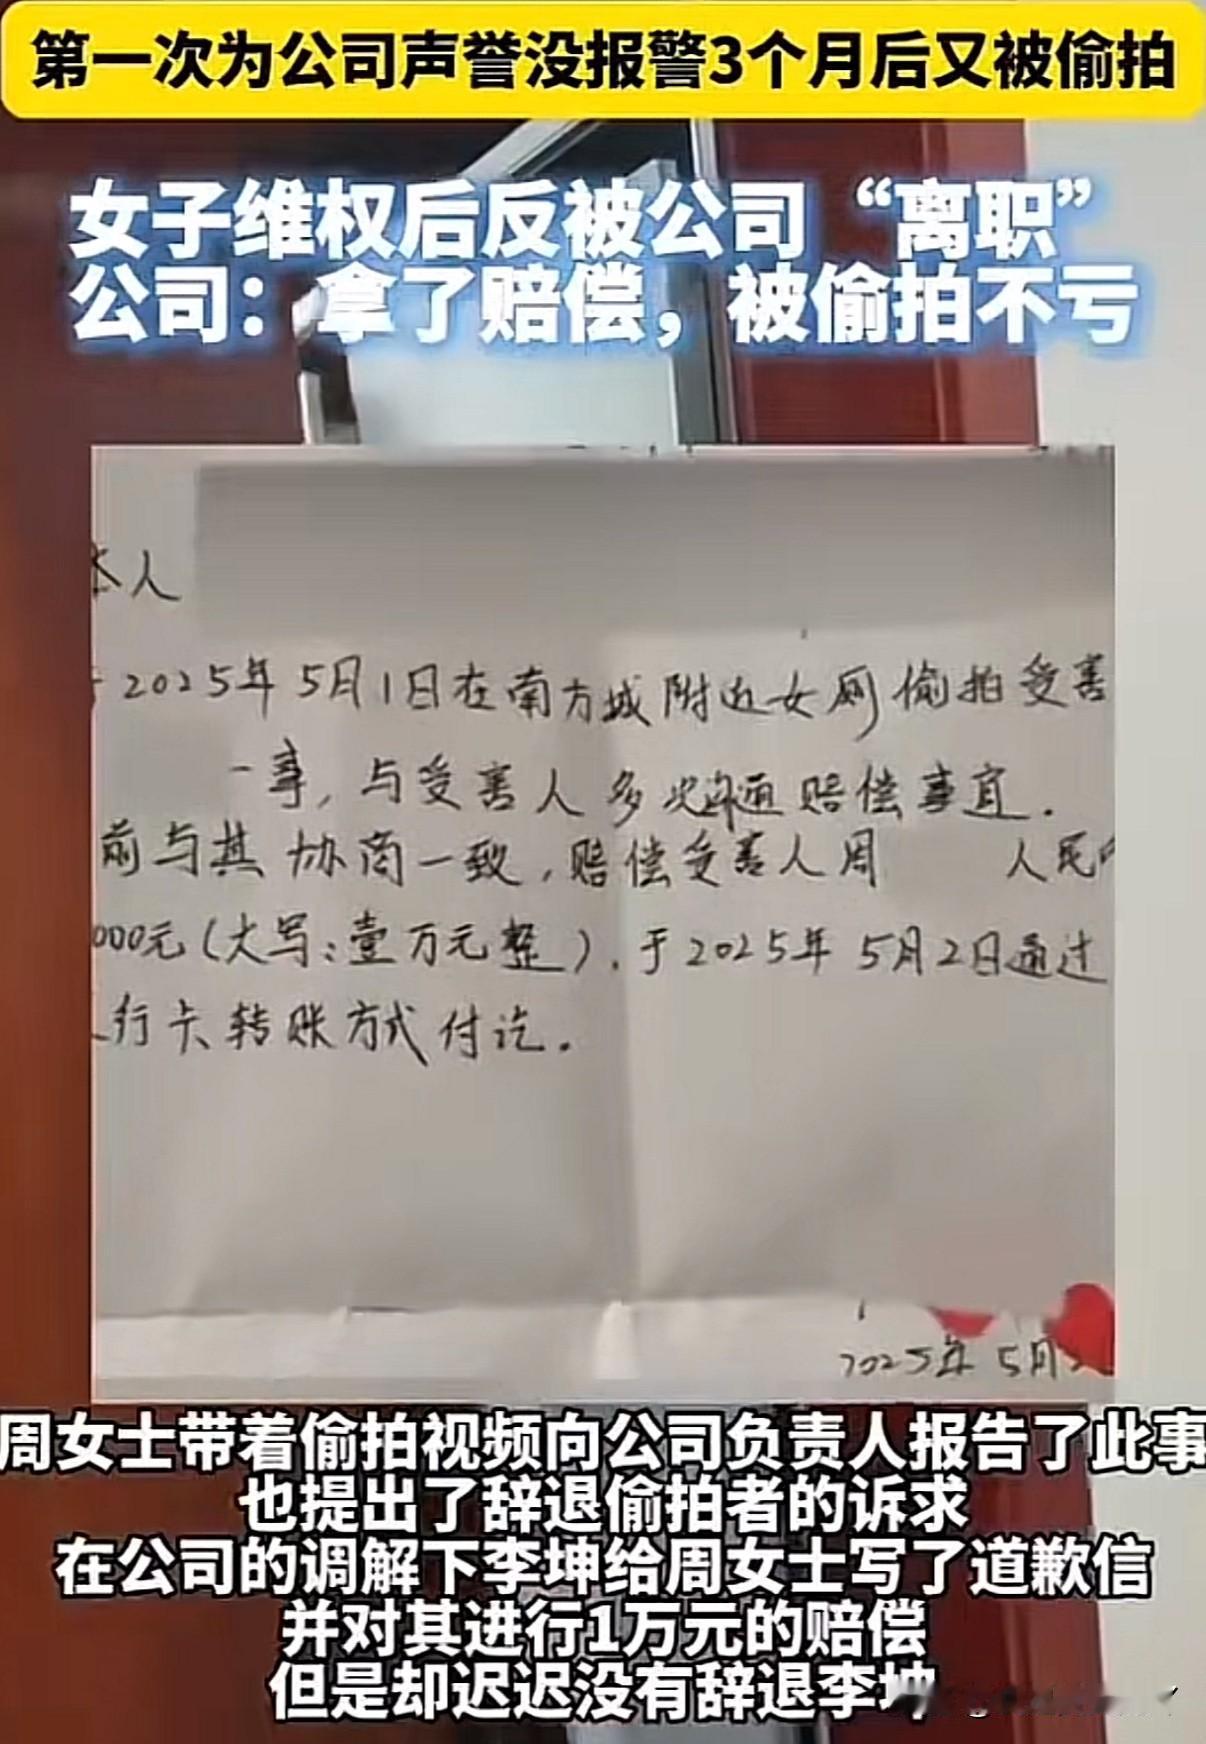 第一次为公司声誉没报警3个月后又被偷拍
女子维权后反被公司“离职”
公司：拿了赔偿，被偷拍不亏
本人
2025年5月1日在南方城附近女厕偷拍受害
一事，与受害人多次沟通赔偿事宜.
前与其协商一致，赔偿受害人周 人民
000元（大写：壹万元整）.于2025年5月2日通过
行卡转账方式付讫.
2025年5月
周女士带着偷拍视频向公司负责人报告了此事
也提出了辞退偷拍者的诉求
在公司的调解下李坤给周女士写了道歉信
并对其进行1万元的赔偿
但是却迟迟没有辞退李坤